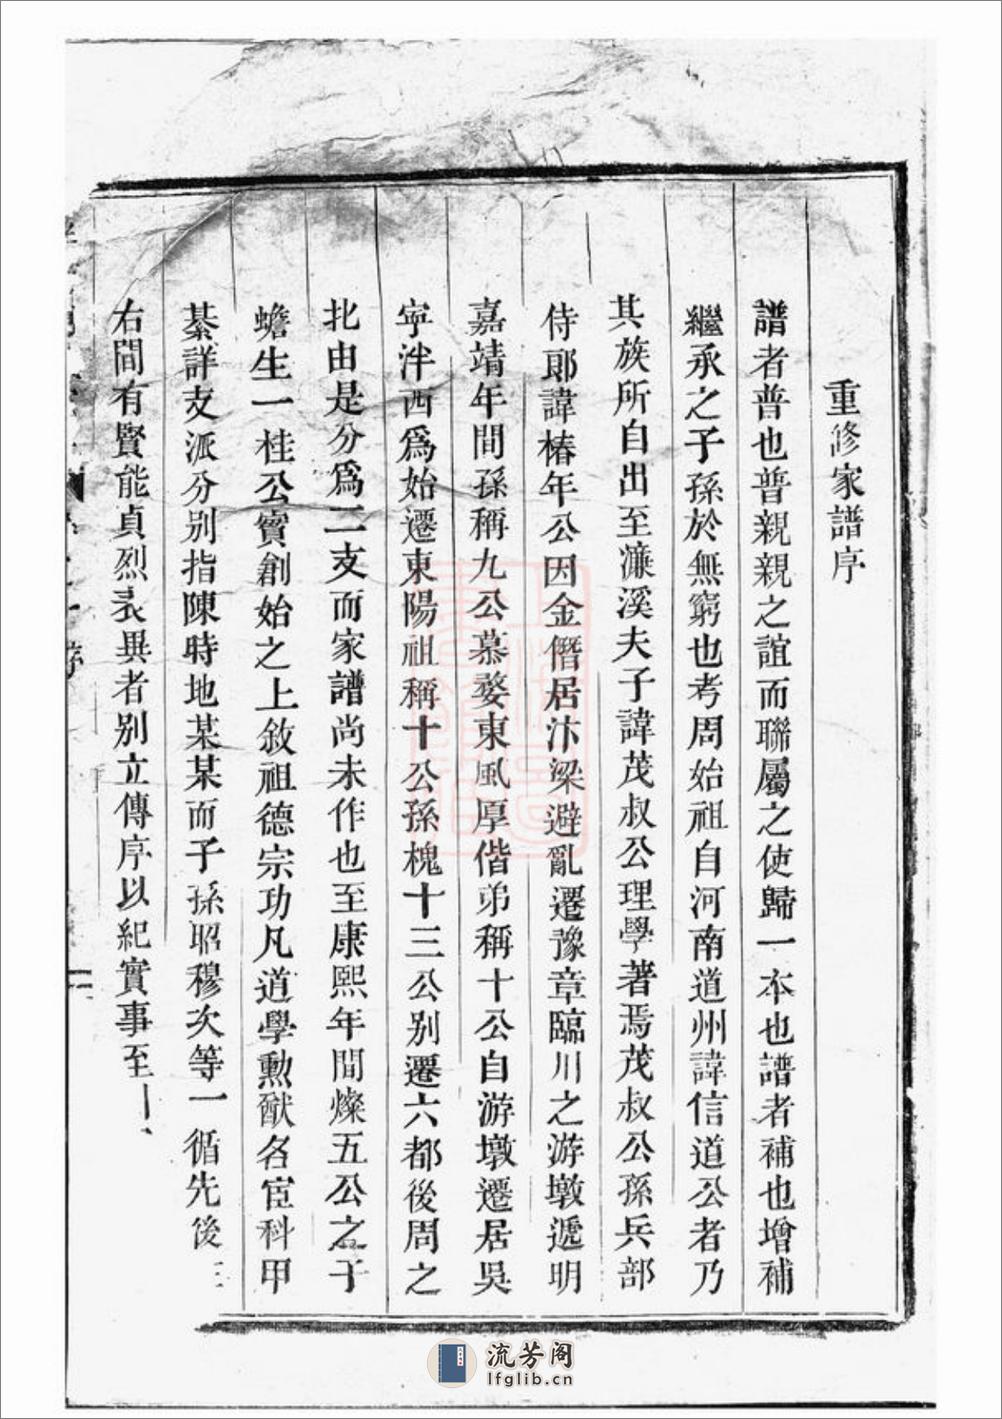 重修家譜序
譜者普也普親親之誼而聯屬之使歸一本也譜者補也增補
繼承之子孫於無窮也考周始祖自河南道州諱信道公者乃
其族所自出至濂溪夫子諱茂叔公理學著焉茂叔公孫兵部
侍郎諱椿年公因金僭居汴梁避亂遷豫章臨川之游墩遞明
嘉靖年間孫稱九公慕婺東風厚偕弟稱十公自游墩遷居吳
寧泮西爲始遷東陽祖稱十公孫槐十三公別遷六都後周之
北由是分爲二支而家譜尚未作也至康熙年間燦五公之子
蟾生一桂公實創始之上敘祖德宗功凡道學勳猷名宦科甲
綦詳支派分別指陳時地某某而子孫昭穆次等一循先後
右間有賢能貞烈表異者別立傳序以紀實事至
流芳阁
lfglib.cn